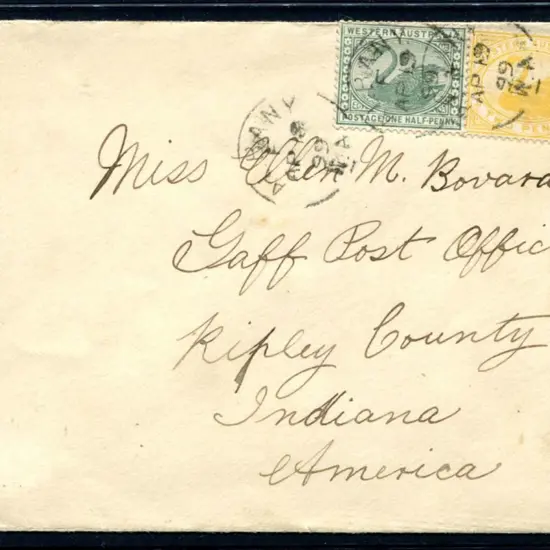 WESTERN AUSTRA
POSTAGE ONE HALF-PENNY
ALBANY
AP 19
96
W.A
AP 19
96
Miss Ellen M. Bovard
Gaff Post Offic
Ripley County
Indiana
America